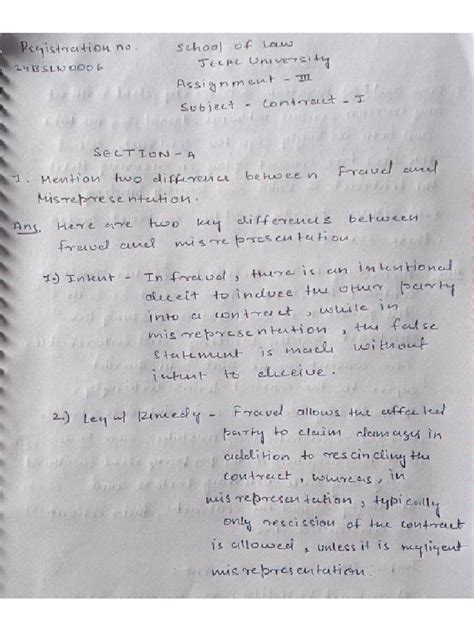 Registration no.
24BSLN0006
School of Law
University
Assignment - III
Subject - Contract - I
SECTION - A
1. Mention two difference between Fraud and
Misrepresentation.
Ans. Here are two key differences between
fraud and misrepresentation.
1.) Intent - In fraud, there is an intentional
deceit to induce the other party
into a contract, while in
misrepresentation, the false
statement is made without
intent to deceive.
2.) Legal Remedy - Fraud allows the affected
party to claim damages in
addition to rescinding the
contract, whereas, in
misrepresentation, typically
only rescission of the contract
is allowed, unless it is negligent
misrepresentation.